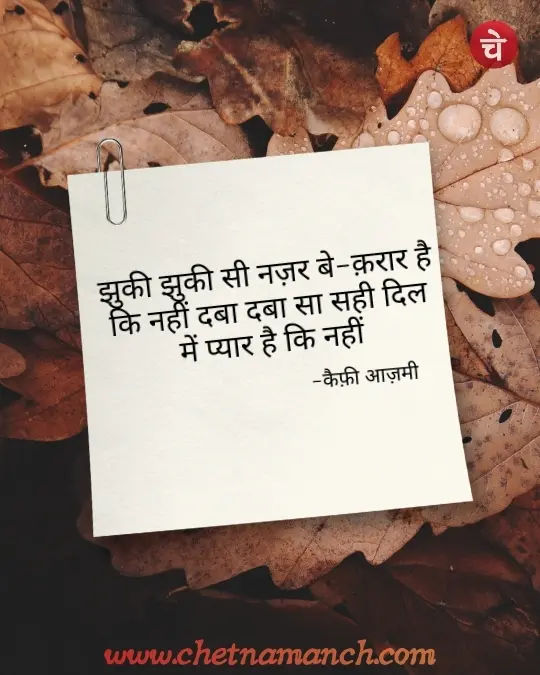 चे
झुकी झुकी सी नज़र बे-क़रार है
कि नहीं दबा दबा सा सही दिल
में प्यार है कि नहीं
-कैफ़ी आज़मी
www.chetnamanch.com